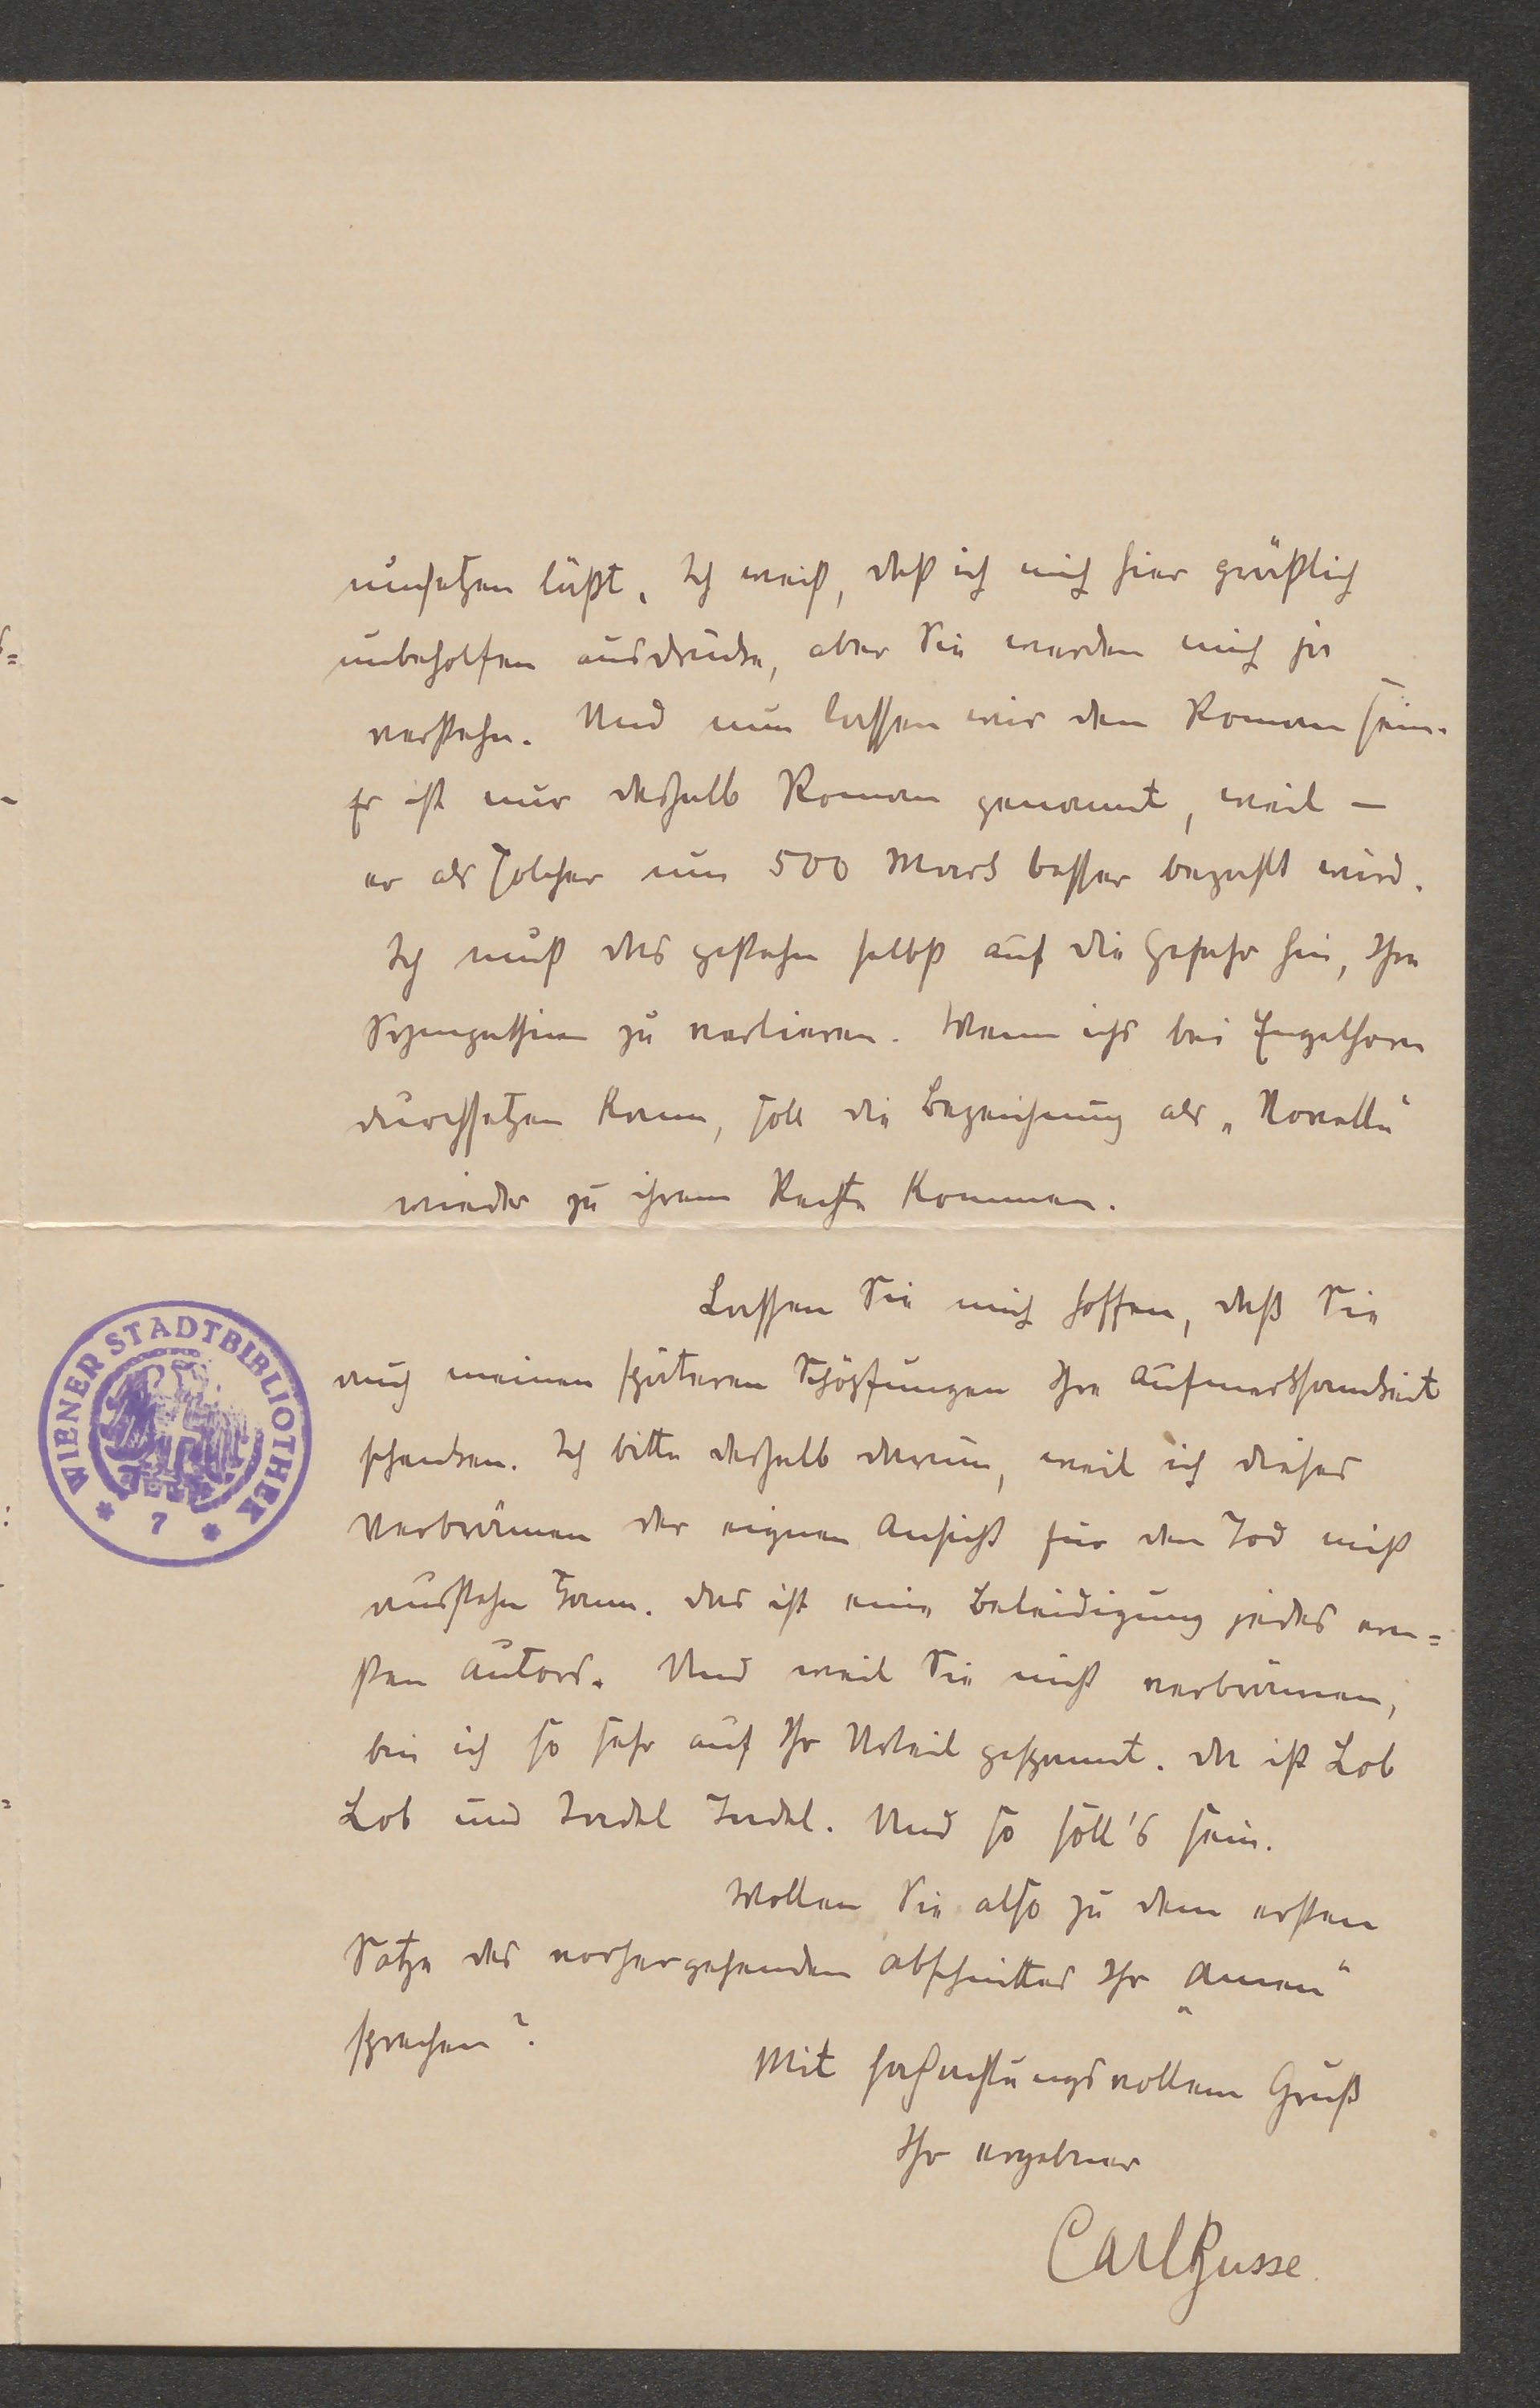 umsetzen läßt. Ich weiß, daß ich mich hier gräßlich
unbeholfen ausdrücke, aber Sie werden mich ja
verstehn. Und nun lassen wir den Roman sein.
Er ist nur deshalb Roman genannt, weil —
er als solcher um 500 Mark besser bezahlt wird.
Ich muß das gestehn selbst auf die Gefahr hin, Ihre
Sympathien zu verlieren. Wenn ichs bei Engelhorn
durchsetzen kann, soll die Bezeichnung als „Novelle“
wieder zu ihrem Rechte kommen.
Lassen Sie mich hoffen, daß Sie
auch meinen späteren Schöpfungen Ihre Aufmerksamkeit
schenken. Ich bitte deshalb darum, weil ich dieses
Verbrämen der eignen Ansicht für den Tod nicht
ausstehn kann. Das ist eine Beleidigung jedes ern=
sten Autors. Und weil Sie nicht verbrämen,
bin ich so sehr auf Ihr Urteil gespannt. Da ist Lob
Lob und Tadel Tadel. Und so soll's sein.
Wollen Sie also zu dem ersten
Satze des vorhergehenden Abschnittes Ihr „Amen“
sprechen?
Mit hochachtungsvollem Gruß
Ihr ergebner
Carl Busse.
WIENER STADTBIBLIOTHEK
* 7 *